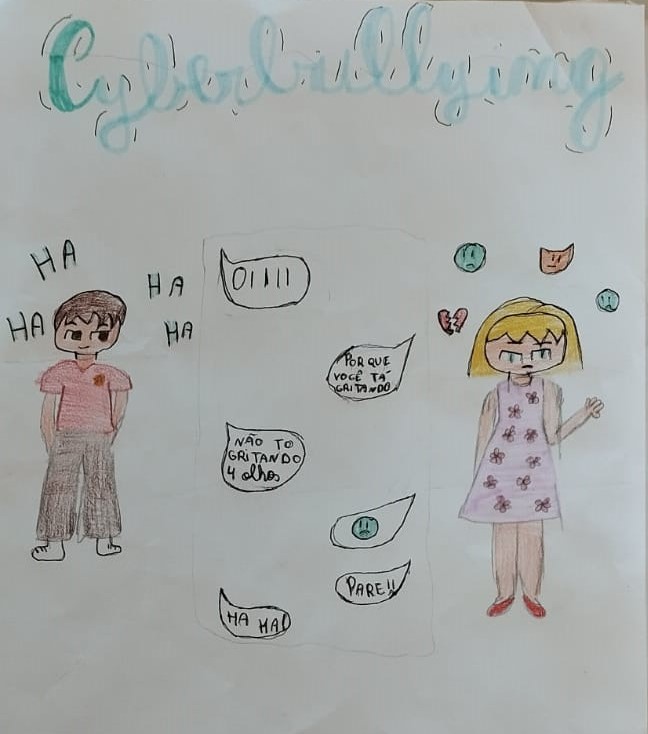 Cyberbullying
HA
HA
HA
HA
OIIII
POR QUE
VOCÊ TÁ
GRITANDO
NÃO TO
GRITANDO
4 olhos
PARE!!
HA HA!